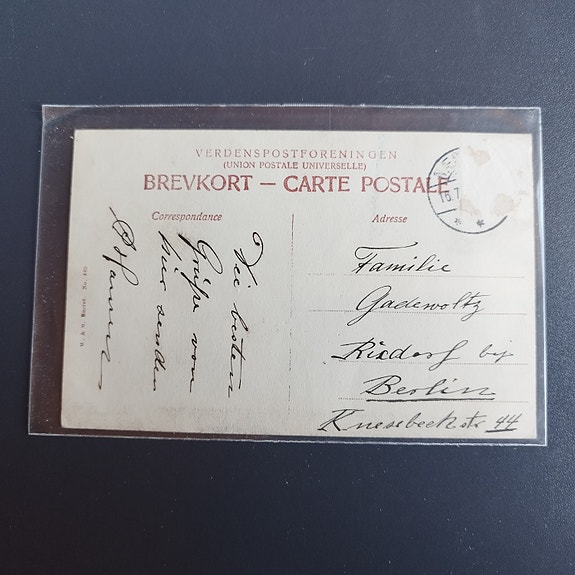 VERDENSPOSTFORENINGEN
(UNION POSTALE UNIVERSELLE)
BREVKORT — CARTE POSTALE
Correspondance
Adresse
Die besten
Grüße von
hier senden
Familie
Gadewoltz
Rixdorf bei
Berlin
Knesebeckstr 44